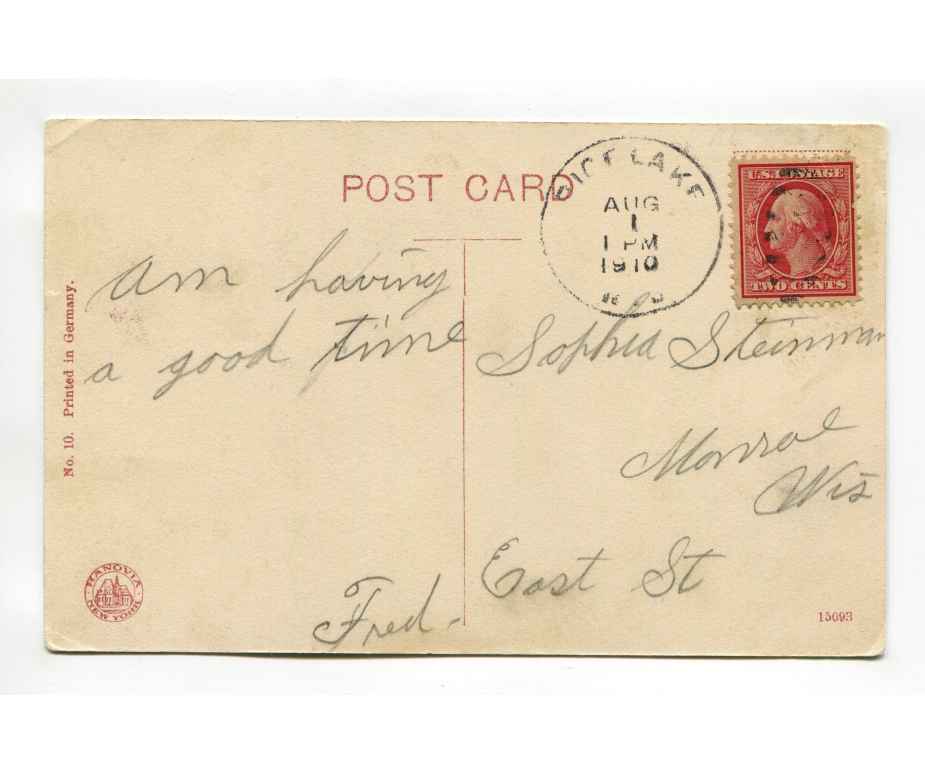 POST CARD
RICE LAKE
AUG
1
1 PM
1910
U.S. POSTAGE
TWO CENTS
am having
a good time
Fred.
Sophia Steinman
Monroe
Wis
East St
No. 10. Printed in Germany.
HANOVIA
NEW YORK
15693